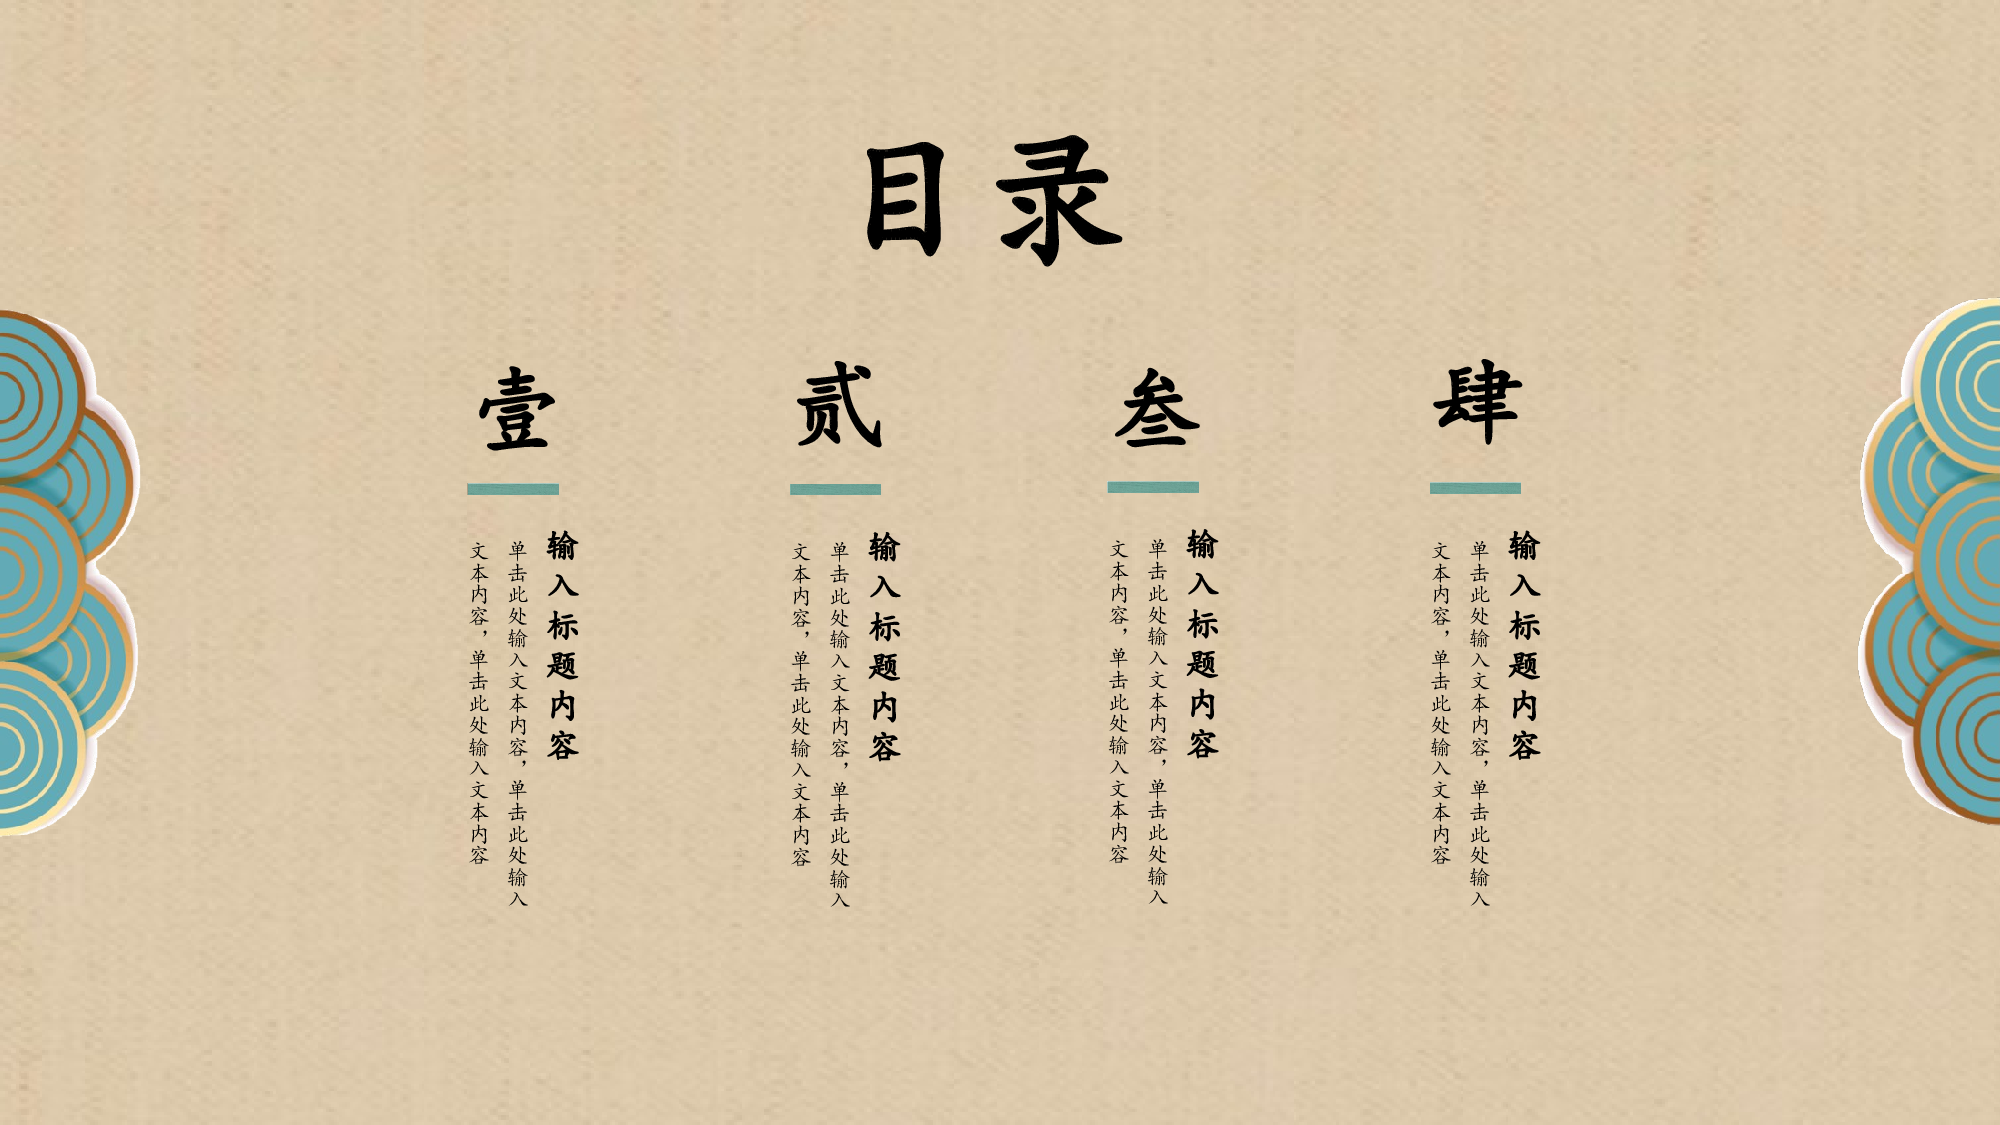 目录
壹
输入标题内容
单击此处输入文本内容，单击此处输入
文本内容，单击此处输入文本内容
贰
输入标题内容
单击此处输入文本内容，单击此处输入
文本内容，单击此处输入文本内容
叁
输入标题内容
单击此处输入文本内容，单击此处输入
文本内容，单击此处输入文本内容
肆
输入标题内容
单击此处输入文本内容，单击此处输入
文本内容，单击此处输入文本内容